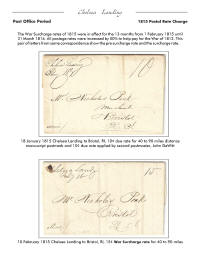 Chelsea Landing
Post Office Period 1815 Postal Rate Change
The War Surcharge rates of 1815 were in effect for the 13 months from 1 February 1815 until
31 March 1816. All postage rates were increased by 50% to help pay for the War of 1812. This
pair of letters from same correspondence show the pre surcharge rate and the surcharge rate.
Chelsea Landing
10
Mr. Nicholas Peck
Merchant
Bristol
R. I.
18 January 1815 Chelsea Landing to Bristol, RI, 10¢ due rate for 40 to 90 miles distance
manuscript postmark and 10¢ due rate applied by second postmaster, John DeWitt
Chelsea Landg
15
Mr. Nicholas Peck
Bristol
R. I.
10 February 1815 Chelsea Landing to Bristol, RI, 15¢ War Surcharge rate for 40 to 90 miles